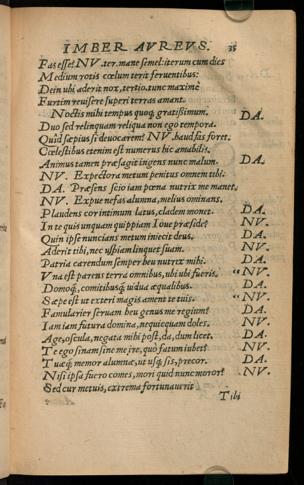 IMBER AVREVS. 35
Fas esset? NV. ter. mane semel: iterum cum dies
Medium rotis cœlum terit feruentibus:
Dein ubi aderit nox, tertio. tunc maximè
Furtim reuisere superi terras amant.
Noctis mihi tempus quoq; gratissimum. DA.
Duo sed relinquam reliqua non ego tempora.
Quid sæpius si deuocarem? NV. haud sis foret.
Cœlestibus etenim est numerus hic amabilis.
Animus tamen præsagit ingens nunc malum. DA.
NV. Expectora metum penitus omnem tibi.
DA. Præsens scio iam pœna nutrix me manet.
NV. Expue nefas alumna, melius ominans.
Plaudens cor intimum latus, cladem monet. DA.
In te quis unquam quippiam Ioue præside? NV.
Quin ipse nuncians metum iniecit deus. DA.
Aderit tibi, nec uspiam linquet suam. NV.
Patria carendum semper heu nutrix mihi. DA.
Vna est parens terra omnibus, ubi ubi fueris. “ NV.
Domoq́, comitibusq́ uidua æqualibus. DA.
Sæpe est ut exteri magis ament te tuis. “ NV.
Famularier seruam heu genus me regium? DA.
Iam iam futura domina, nequicquam doles. NV.
Age, oscula, negata mihi post, da, dum licet. DA.
Te ego sinam sine me ire, quò fatum iubet? NV.
Tuaq́ memor alumnæ, ut usq; sis, precor. DA.
Nisi ipsa fuero comes, mori quid nunc moror? NV.
Sed cur metuis, extrema fortuna urit
Tibi